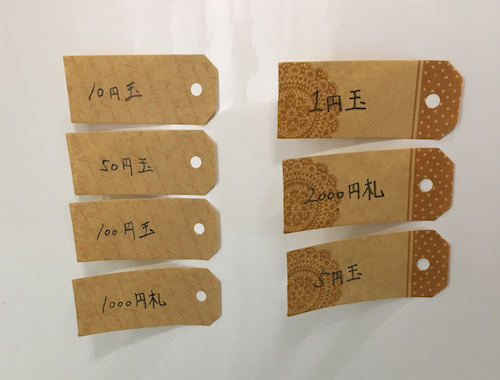 10円玉
50円玉
100円玉
1000円札
1円玉
2000円札
5円玉